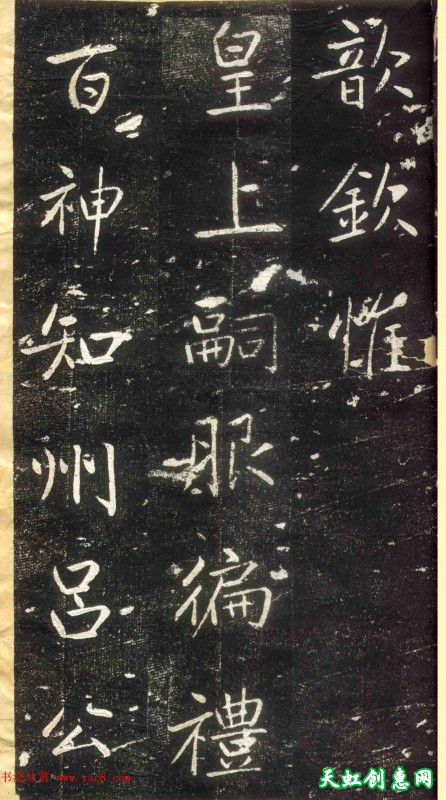 歆欽惟
皇上嗣服徧禮
百神知州呂公
书法欣赏 www.yac8.com
天虹创惠网